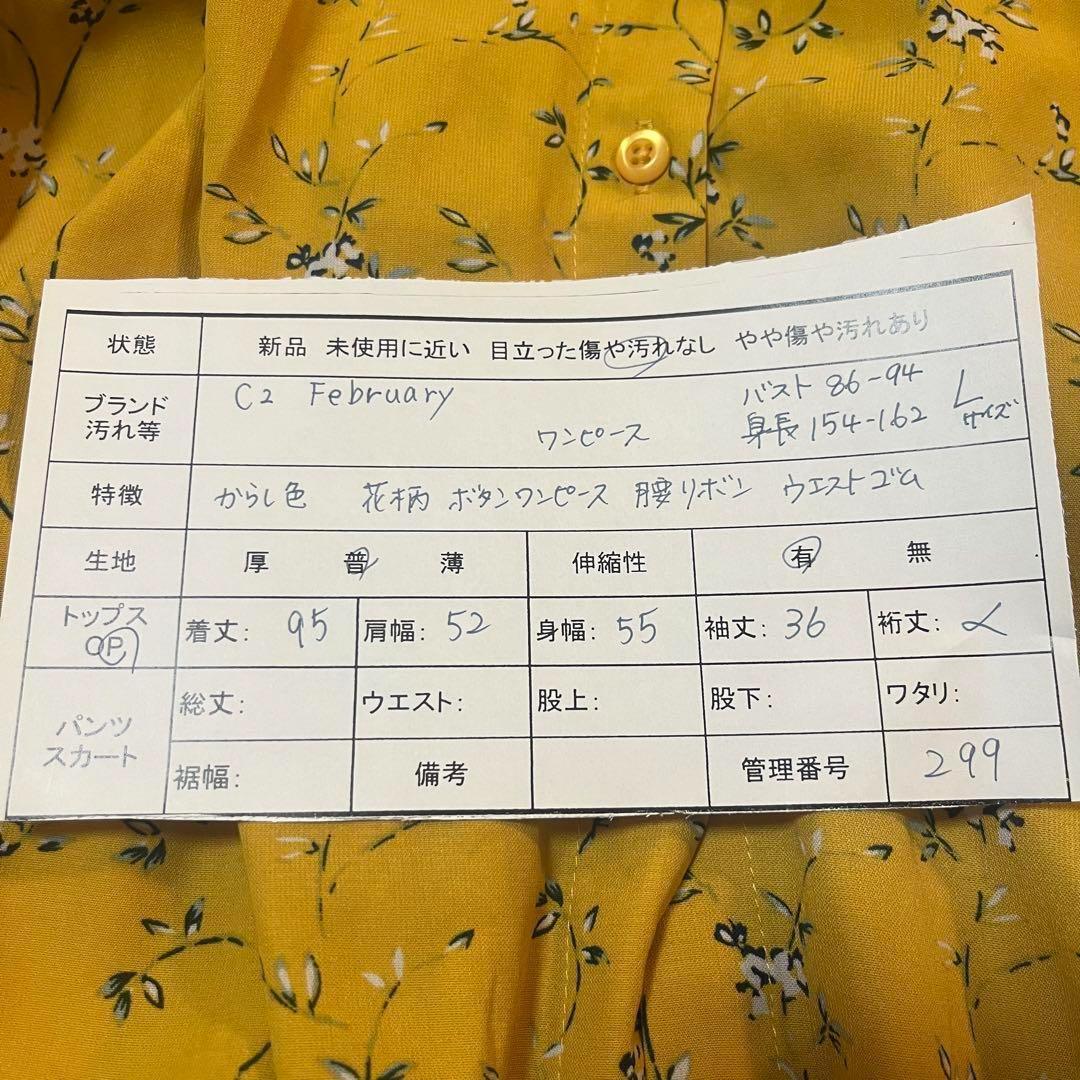 状態 新品 未使用に近い 目立った傷や汚れなし やや傷や汚れあり
ブランド 汚れ等 C2 February ワンピース バスト 86-94 身長 154-162 Lサイズ
特徴 からし色 花柄 ボタンワンピース 腰リボン ウエストゴム
生地 厚 普 薄 伸縮性 有 無
トップス OP 着丈: 95 肩幅: 52 身幅: 55 袖丈: 36 裄丈:
パンツ スカート 総丈: ウエスト: 股上: 股下: ワタリ:
裾幅: 備考 管理番号 299